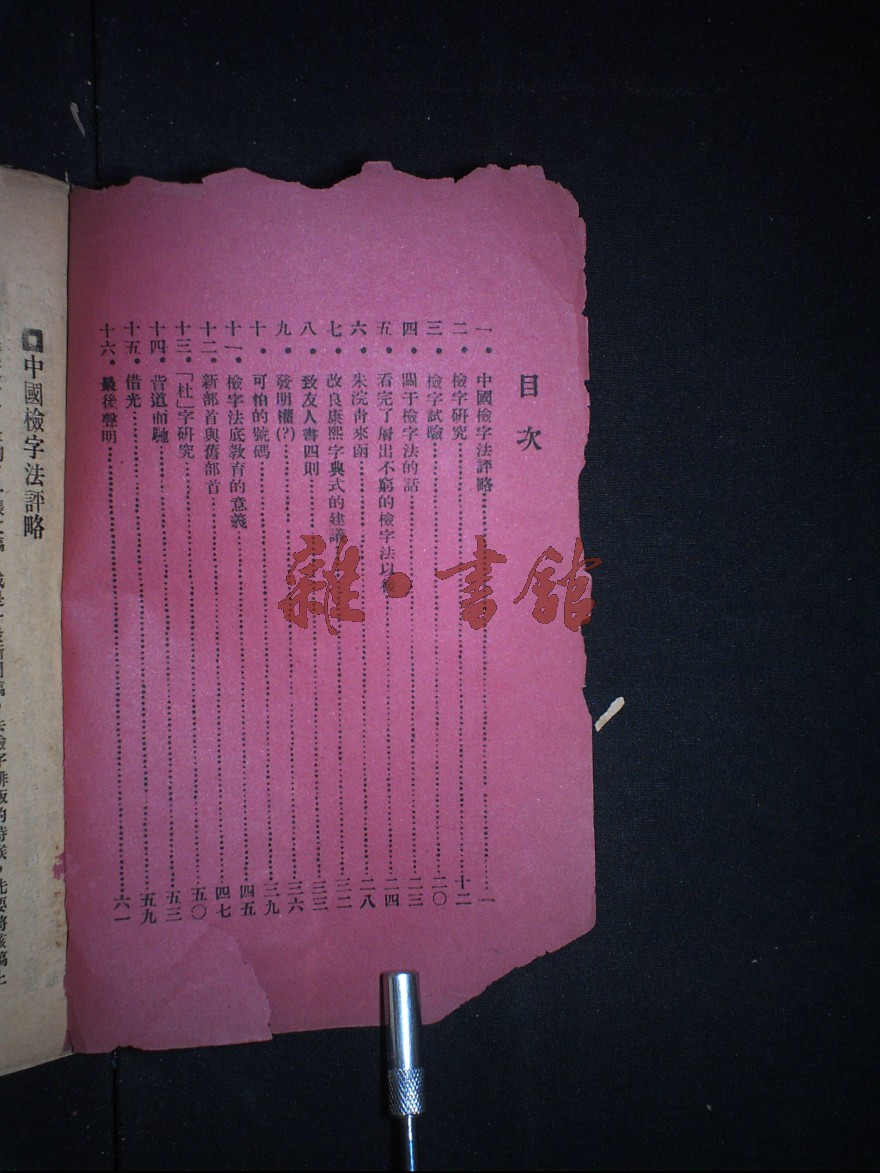 目次
一・中國檢字法評略……一
二・檢字研究……十二
三・檢字試驗……二〇
四・關于檢字法的話……二三
五・看完了層出不窮的檢字法以後……二四
六・朱浣靑來函……二八
七・改良康熙字典式的建議……三二
八・致友人書四則……三三
九・發明權(?)……三六
十・可怕的號碼……三九
十一・檢字法底敎育的意義……四五
十二・新部首與舊部首……四七
十三・「杜」字研究……五〇
十四・背道而馳……五三
十五・借光……五九
十六・最後聲明……六一
中國檢字法評略
去檢字排版的時候,先要將該稿上
雜・書舘